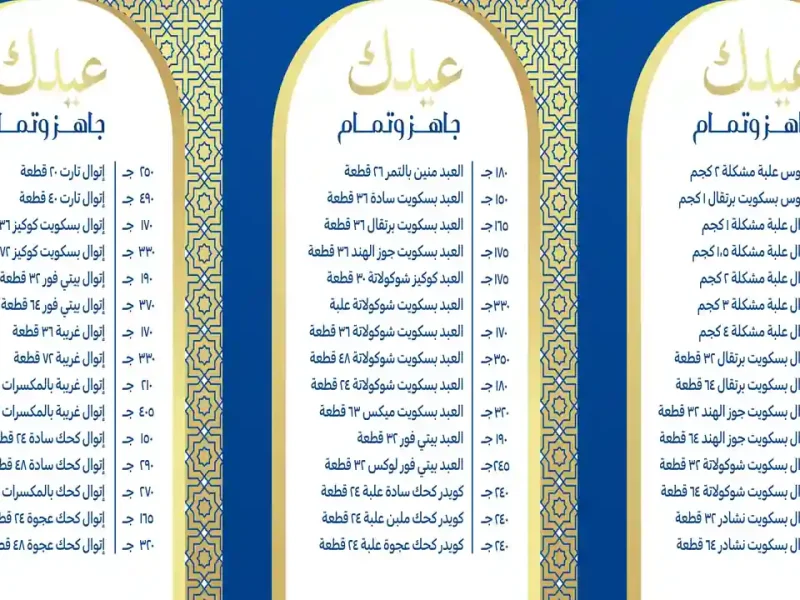 عيدك
هـز وتمـام
وس علبة مشكلة ٢ كجم
وس بسكويت برتقال ١ كجم
ال علبة مشكلة ١ كجم
ال علبة مشكلة ١،٥ كجم
ال علبة مشكلة ٢ كجم
ال علبة مشكلة ٣ كجم
ال علبة مشكلة ٤ كجم
ال بسكويت برتقال ٣٢ قطعة
ال بسكويت برتقال ٦٤ قطعة
ال بسكويت جوز الهند ٣٢ قطعة
ال بسكويت جوز الهند ٦٤ قطعة
ال بسكويت شوكولاتة ٣٢ قطعة
ال بسكويت شوكولاتة ٦٤ قطعة
ال بسكويت نشادر ٣٢ قطعة
ال بسكويت نشادر ٦٤ قطعة
عيدك
جاهـز وتمـام
١٨٠ جـ العبد منين بالتمر ٢٦ قطعة
١٥٠ جـ العبد بسكويت سادة ٣٦ قطعة
١٦٥ جـ العبد بسكويت برتقال ٣٦ قطعة
١٧٥ جـ العبد بسكويت جوز الهند ٣٦ قطعة
١٧٥ جـ العبد كوكيز شوكولاتة ٣٠ قطعة
٣٣٠ جـ العبد بسكويت شوكولاتة علبة
١٧٠ جـ العبد بسكويت شوكولاتة ٣٦ قطعة
٣٥٠ جـ العبد بسكويت شوكولاتة ٤٨ قطعة
١٨٠ جـ العبد بسكويت شوكولاتة ٢٤ قطعة
٣٢٠ جـ العبد بسكويت ميكس ٦٣ قطعة
١٩٠ جـ العبد بيتي فور ٣٢ قطعة
٢٤٥ جـ العبد بيتي فور لوكس ٣٢ قطعة
٢٤٠ جـ كويدر كحك سادة علبة ٢٤ قطعة
٢٤٠ جـ كويدر كحك ملبن علبة ٢٤ قطعة
٢٤٠ جـ كويدر كحك عجوة علبة ٢٤ قطعة
عيدك
جاهـز وتمـا
٢٥٠ جـ إتوال تارت ٢٠ قطعة
٤٩٠ جـ إتوال تارت ٤٠ قطعة
١٧٠ جـ إتوال بسكويت كوكيز ٣٦
٣٣٠ جـ إتوال بسكويت كوكيز ٧٢
١٩٠ جـ إتوال بيتي فور ٣٢ قطعة
٣٧٠ جـ إتوال بيتي فور ٦٤ قطعة
١٧٠ جـ إتوال غريبة ٣٦ قطعة
٣٣٠ جـ إتوال غريبة ٧٢ قطعة
٢١٠ جـ إتوال غريبة بالمكسرات
٤٠٥ جـ إتوال غريبة بالمكسرات
١٥٠ جـ إتوال كحك سادة ٢٤ قط
٢٩٠ جـ إتوال كحك سادة ٤٨ قط
٢٧٠ جـ إتوال كحك بالمكسرات
١٦٥ جـ إتوال كحك عجوة ٢٤ قط
٣٢٠ جـ إتوال كحك عجوة ٤٨ قط